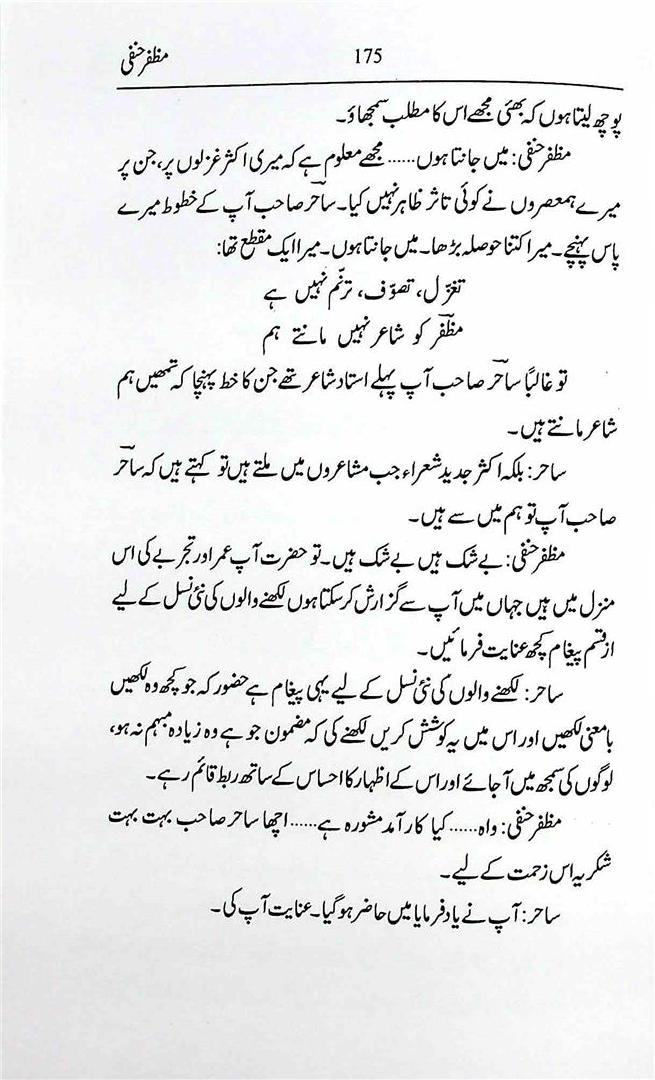 مظفر حنفی 175
پوچھ لیتا ہوں کہ بھئی مجھے اس کا مطلب سمجھاؤ۔
مظفر حنفی: میں جانتا ہوں...... مجھے معلوم ہے کہ میری اکثر غزلوں پر، جن پر
میرے ہمعصروں نے کوئی تاثر ظاہر نہیں کیا۔ ساحر صاحب آپ کے خطوط میرے
پاس پہنچے۔ میرا کتنا حوصلہ بڑھا۔ میں جانتا ہوں۔ میرا ایک مقطع تھا:
تغزّل، تصوّف، ترنّم نہیں ہے
مظفر کو شاعر نہیں مانتے ہم
تو غالباً ساحر صاحب آپ پہلے استاد شاعر تھے جن کا خط پہنچا کہ تمھیں ہم
شاعر مانتے ہیں۔
ساحر: بلکہ اکثر جدید شعراء جب مشاعروں میں ملتے ہیں تو کہتے ہیں کہ ساحر
صاحب آپ تو ہم میں سے ہیں۔
مظفر حنفی: بے شک ہیں بے شک ہیں۔ تو حضرت آپ عمر اور تجربے کی اس
منزل میں ہیں جہاں میں آپ سے گزارش کر سکتا ہوں لکھنے والوں کی نئی نسل کے لیے
از قسم پیغام کچھ عنایت فرمائیں۔
ساحر: لکھنے والوں کی نئی نسل کے لیے یہی پیغام ہے حضور کہ جو کچھ وہ لکھیں
بامعنی لکھیں اور اس میں یہ کوشش کریں لکھنے کی کہ مضمون جو ہے وہ زیادہ مبہم نہ ہو،
لوگوں کی سمجھ میں آ جائے اور اس کے اظہار کا احساس کے ساتھ ربط قائم رہے۔
مظفر حنفی: واہ...... کیا کارآمد مشورہ ہے...... اچھا ساحر صاحب بہت بہت
شکریہ اس زحمت کے لیے۔
ساحر: آپ نے یاد فرمایا میں حاضر ہو گیا۔ عنایت آپ کی۔